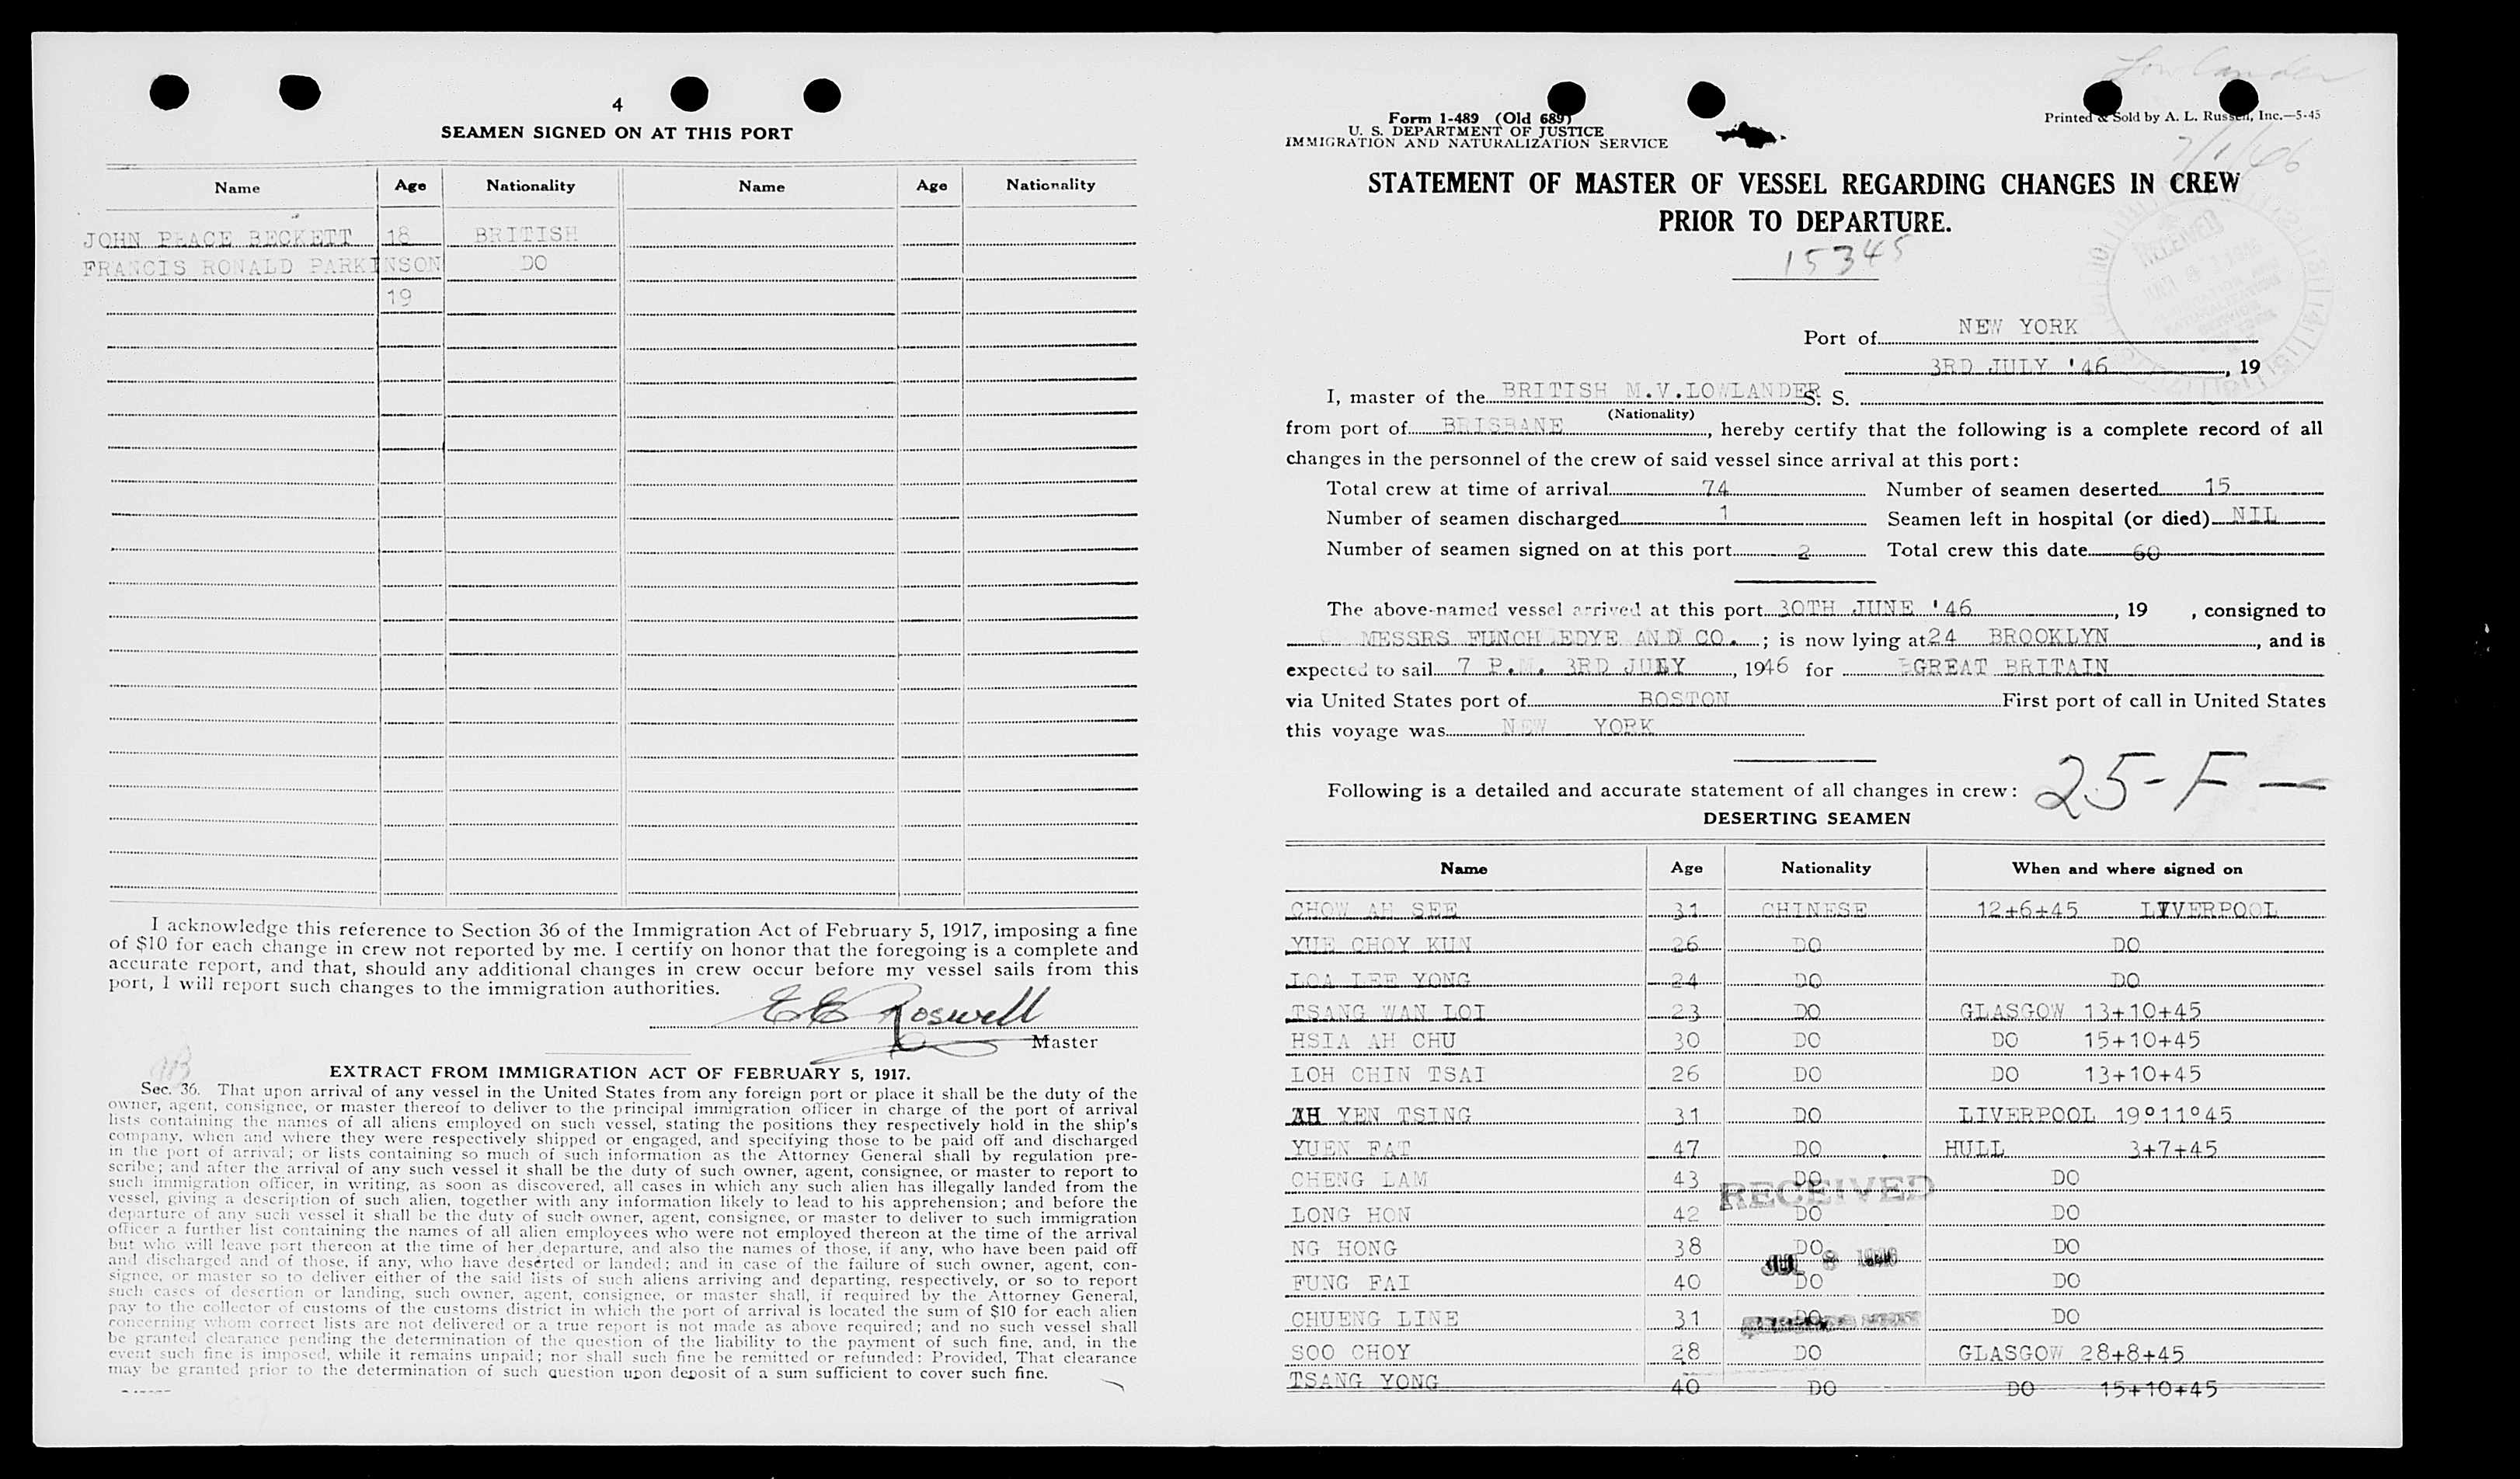 4
SEAMEN SIGNED ON AT THIS PORT
Name Age Nationality Name Age Nationality
JOHN PEACE BECKETT 18 BRITISH
FRANCIS RONALD PARKINSON DO
19
I acknowledge this reference to Section 36 of the Immigration Act of February 5, 1917, imposing a fine
of $10 for each change in crew not reported by me. I certify on honor that the foregoing is a complete and
accurate report, and that, should any additional changes in crew occur before my vessel sails from this
port, I will report such changes to the immigration authorities.
EE Roswell
Master
EXTRACT FROM IMMIGRATION ACT OF FEBRUARY 5, 1917.
Sec. 36. That upon arrival of any vessel in the United States from any foreign port or place it shall be the duty of the
owner, agent, consignee, or master thereof to deliver to the principal immigration officer in charge of the port of arrival
lists containing the names of all aliens employed on such vessel, stating the positions they respectively hold in the ship's
company, when and where they were respectively shipped or engaged, and specifying those to be paid off and discharged
in the port of arrival; or lists containing so much of such information as the Attorney General shall by regulation pre-
scribe; and after the arrival of any such vessel it shall be the duty of such owner, agent, consignee, or master to report to
such immigration officer, in writing, as soon as discovered, all cases in which any such alien has illegally landed from the
vessel, giving a description of such alien, together with any information likely to lead to his apprehension; and before the
departure of any such vessel it shall be the duty of such owner, agent, consignee, or master to deliver to such immigration
officer a further list containing the names of all alien employees who were not employed thereon at the time of the arrival
but who will leave port thereon at the time of her departure, and also the names of those, if any, who have been paid off
and discharged and of those, if any, who have deserted or landed; and in case of the failure of such owner, agent, con-
signee, or master so to deliver either of the said lists of such aliens arriving and departing, respectively, or so to report
such cases of desertion or landing, such owner, agent, consignee, or master shall, if required by the Attorney General,
pay to the collector of customs of the customs district in which the port of arrival is located the sum of $10 for each alien
concerning whom correct lists are not delivered or a true report is not made as above required; and no such vessel shall
be granted clearance pending the determination of the question of the liability to the payment of such fine, and, in the
event such fine is imposed, while it remains unpaid; nor shall such fine be remitted or refunded: Provided, That clearance
may be granted prior to the determination of such question upon deposit of a sum sufficient to cover such fine.
Lowlander
Form 1-489 (Old 689)
U. S. DEPARTMENT OF JUSTICE
IMMIGRATION AND NATURALIZATION SERVICE
Printed & Sold by A. L. Russell, Inc.—5-45
7/1/46
STATEMENT OF MASTER OF VESSEL REGARDING CHANGES IN CREW
PRIOR TO DEPARTURE.
RECEIVED
15345
Port of NEW YORK
3RD JULY '46, 19
I, master of the BRITISH M.V. LOWLANDER S. S.
(Nationality)
from port of BRISBANE, hereby certify that the following is a complete record of all
changes in the personnel of the crew of said vessel since arrival at this port:
Total crew at time of arrival 74 Number of seamen deserted 15
Number of seamen discharged 1 Seamen left in hospital (or died) NIL
Number of seamen signed on at this port 2 Total crew this date 60
The above-named vessel arrived at this port 30TH JUNE '46, 19 , consigned to
MESSRS FUNCH EDYE AND CO. ; is now lying at 24 BROOKLYN, and is
expected to sail 7 P.M. 3RD JULY, 1946 for GREAT BRITAIN
via United States port of BOSTON First port of call in United States
this voyage was NEW YORK
25-F—
Following is a detailed and accurate statement of all changes in crew:
DESERTING SEAMEN
Name Age Nationality When and where signed on
CHOW AH SEE 31 CHINESE 12+6+45 LIVERPOOL
YUE CHOY KUN 26 DO DO
LOA LEE YONG 24 DO DO
TSANG WAN LOI 23 DO GLASGOW 13+10+45
HSIA AH CHU 30 DO DO 15+10+45
LOH CHIN TSAI 26 DO DO 13+10+45
AH YEN TSING 31 DO LIVERPOOL 19º11º45
YUEN FAT 47 DO HULL 3+7+45
CHENG LAM 43 DO DO
RECEIVED
LONG HON 42 DO DO
NG HONG 38 DO DO
JUL 8 1946
FUNG FAI 40 DO DO
CHUENG LINE 31 DO DO
SOO CHOY 28 DO GLASGOW 28+8+45
TSANG YONG 40 DO DO 15+10+45